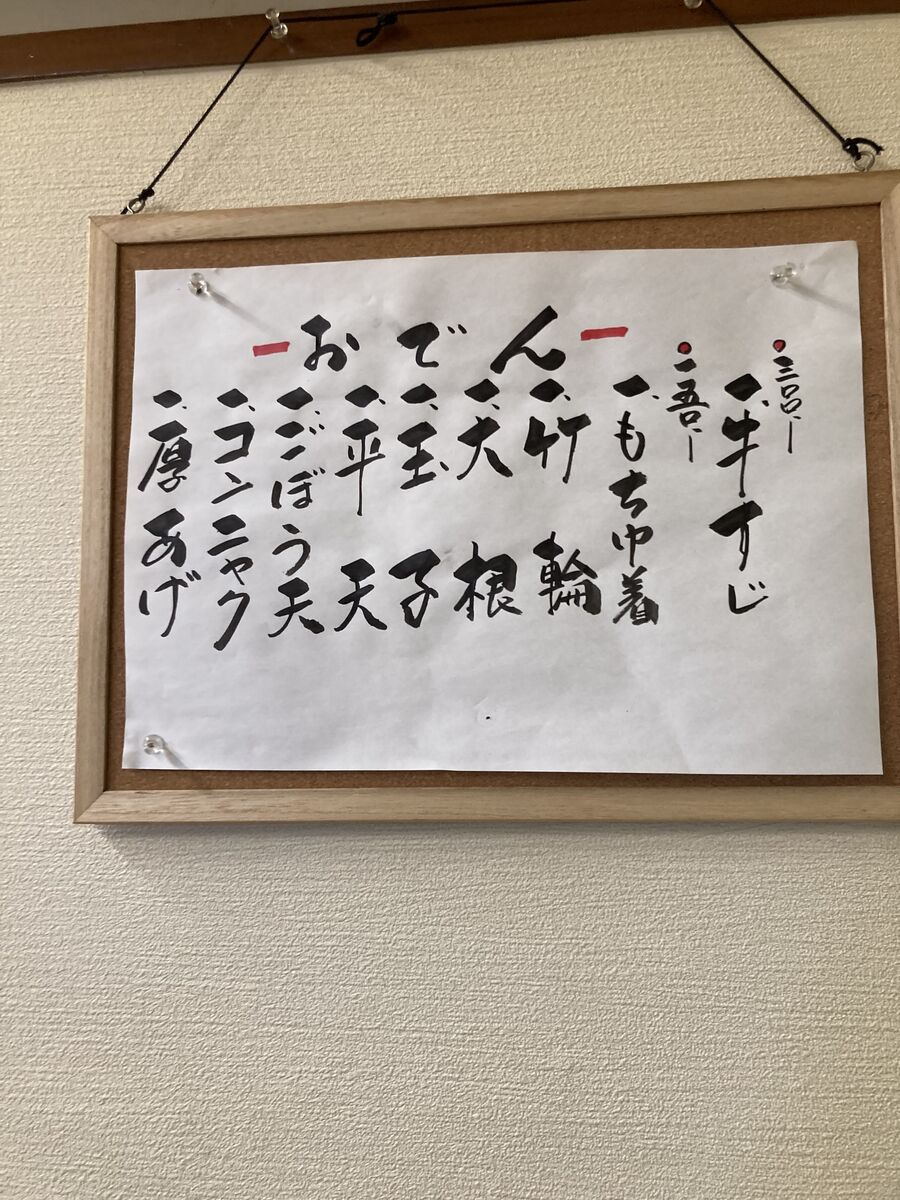 おでん
・三〇〇、ー
一、牛すじ
・一五〇、ー
一、もち巾着
一、竹輪
一、大根
一、玉子
一、平天
一、ごぼう天
一、コンニャク
一、厚あげ